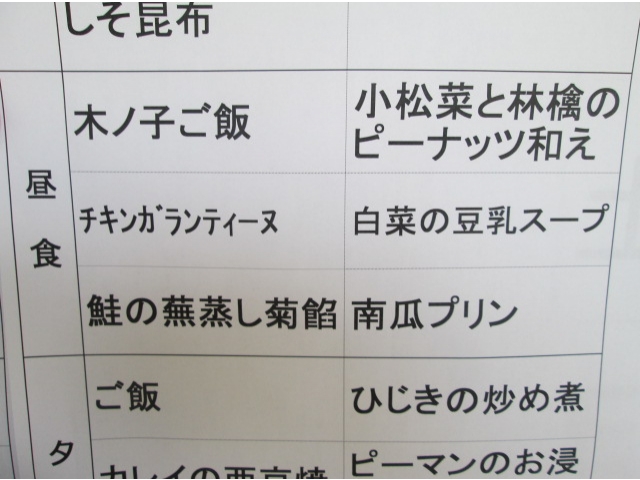 しそ昆布
昼食
木ノ子ご飯
小松菜と林檎の
ピーナッツ和え
ﾁｷﾝｶﾞﾗﾝﾃｨｰﾇ
白菜の豆乳スープ
鮭の蕪蒸し菊餡
南瓜プリン
夕
ご飯
ひじきの炒め煮
カレイの西京焼
ピーマンのお浸